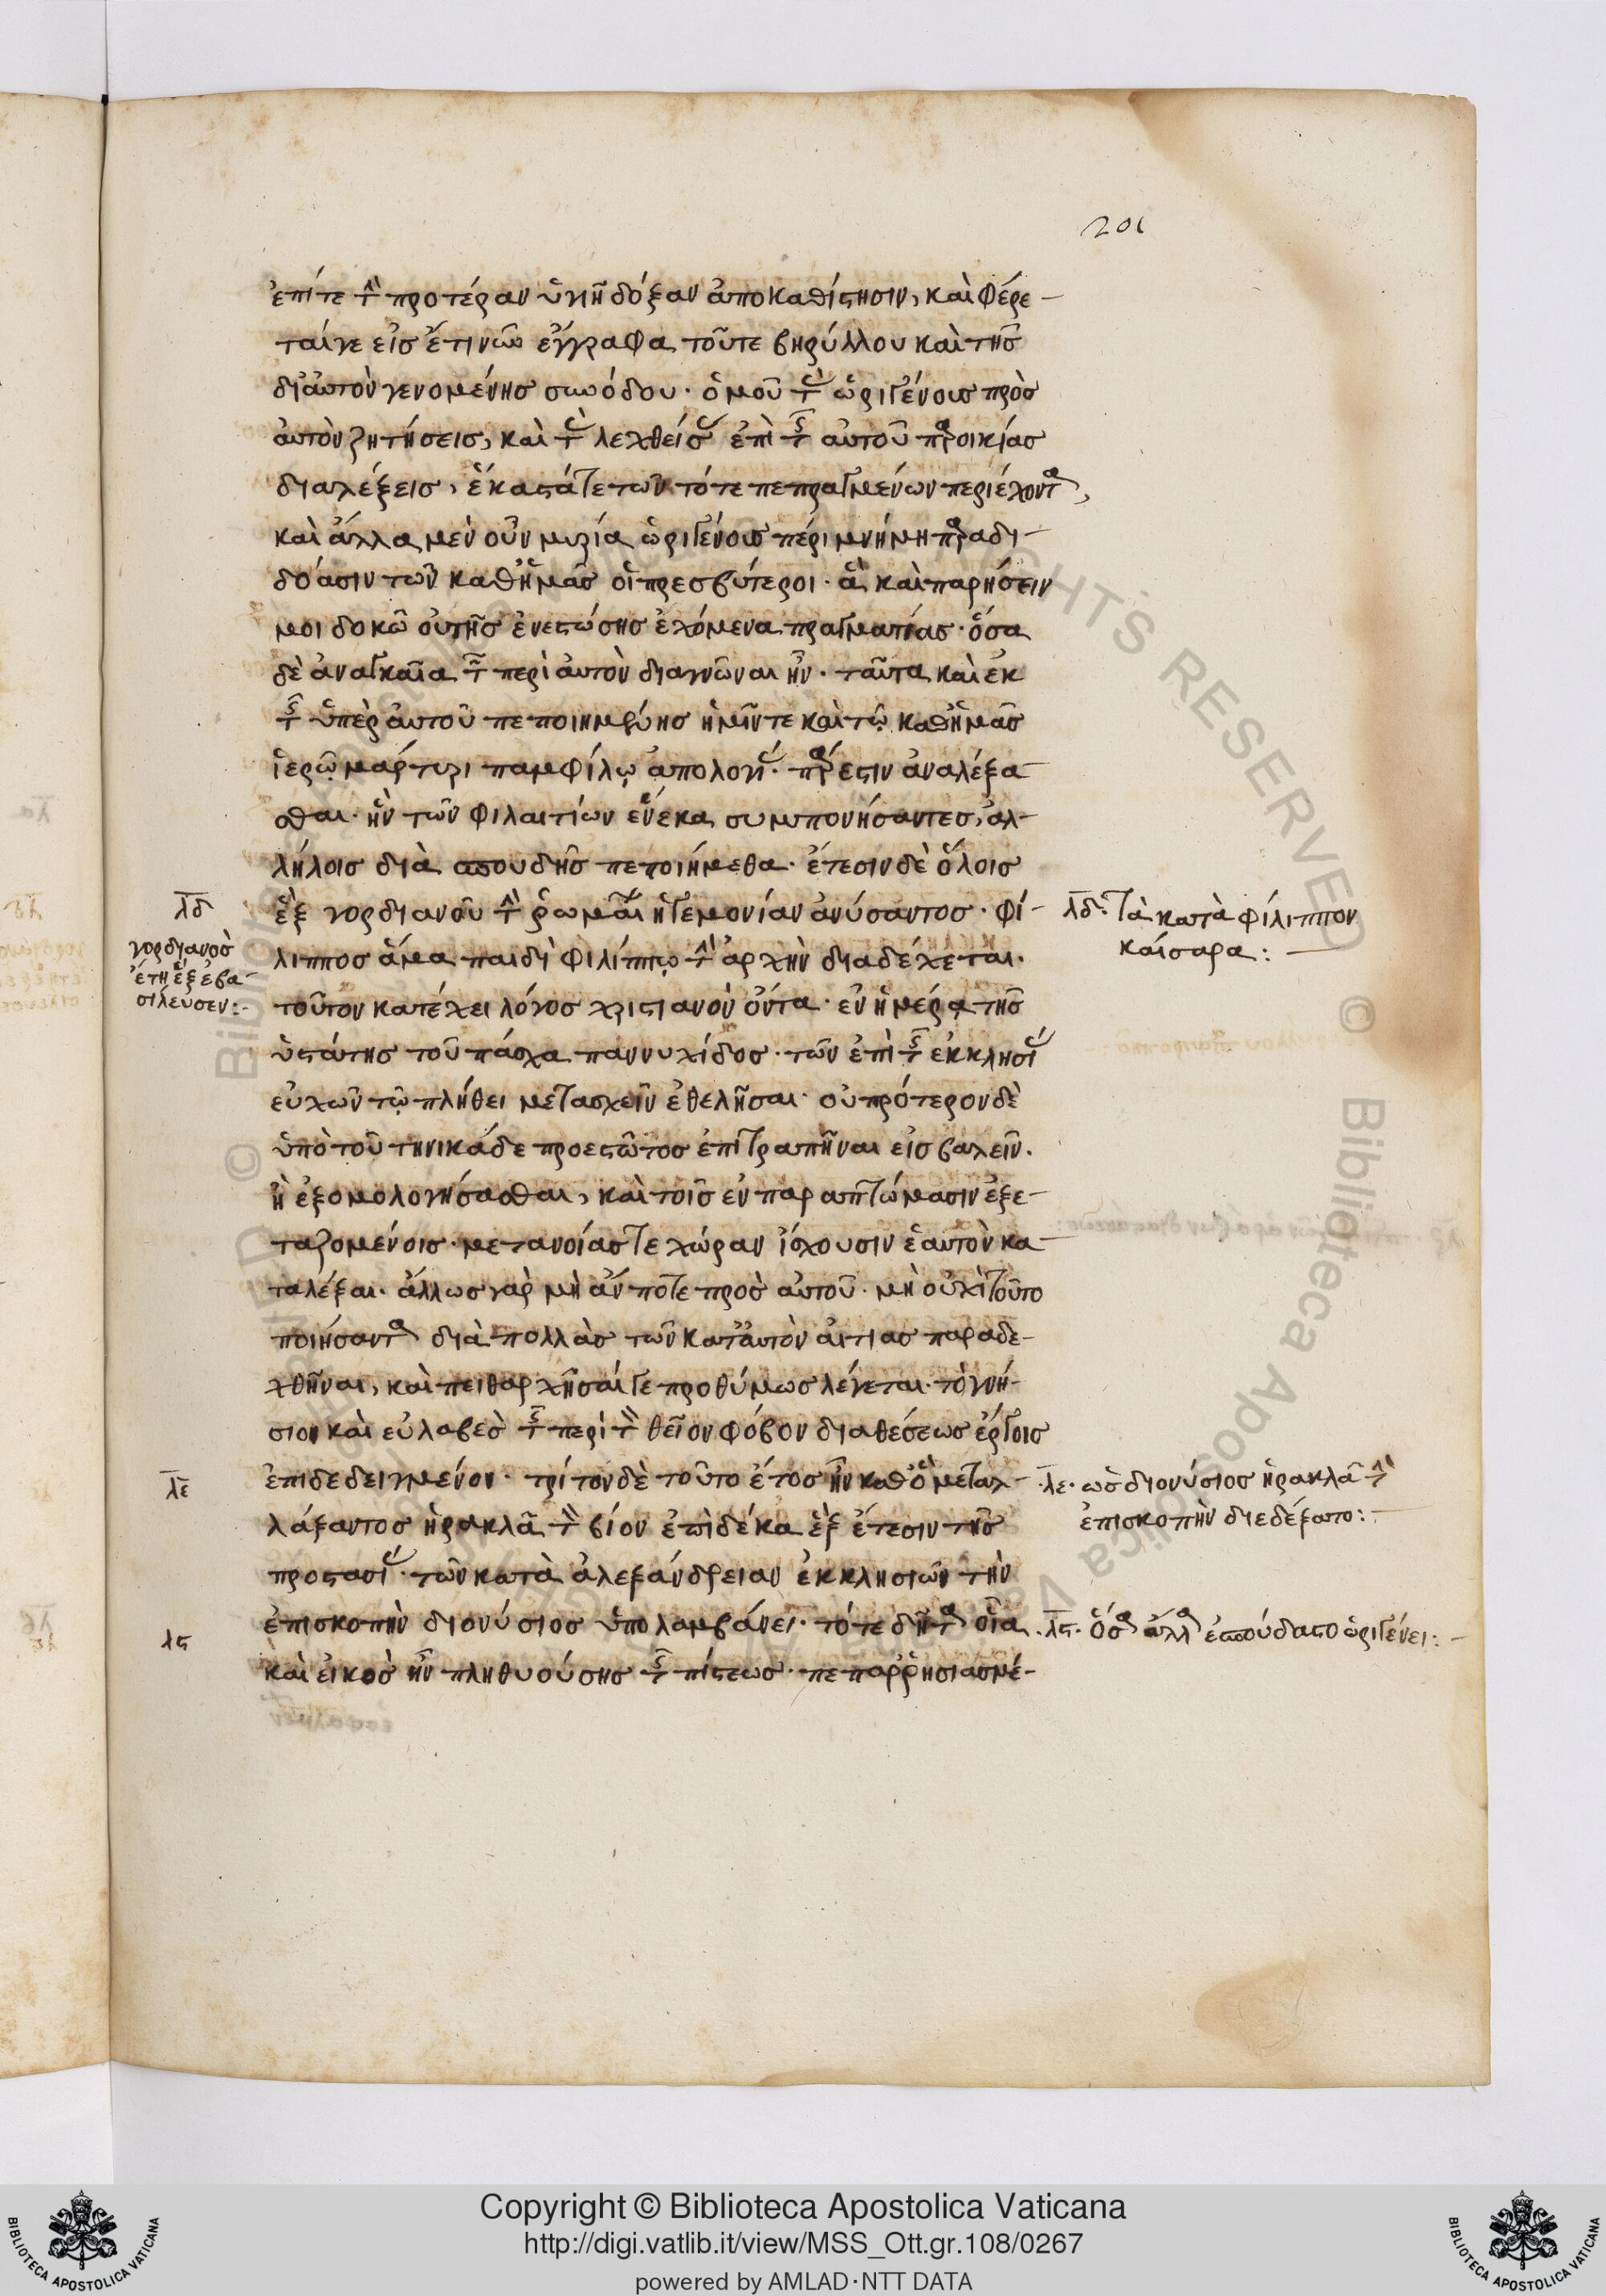 201
ἐπί τε τὴν προτέραν ὑγιῆ δόξαν ἀποκαθίστησιν, καὶ φέρε-
ταί γε εἰσέτι νῦν ἔγγραφα τοῦ τε βηρύλλου καὶ τῆς
δι' αὐτὸν γενομένης συνόδου· ὁμοῦ τὰς ὠριγένους πρὸς
αὐτὸν ζητήσεις, καὶ τὰς λεχθείσας ἐπὶ τῆς αὐτοῦ παροικίας
διαλέξεις, ἕκαστά τε τῶν τότε πεπραγμένων περιέχοντα,
καὶ ἄλλα μὲν οὖν μυρία ὠριγένους πέρι μνήμη παραδι-
δόασιν τῶν καθ' ἡμᾶς οἱ πρεσβύτεροι· ἃ καὶ παρήσειν
μοι δοκῶ οὐ τῆς ἐνεστώσης ἐχόμενα πραγματείας· ὅσα
δὲ ἀναγκαῖα τῶν περὶ αὐτὸν διαγνῶναι ἦν· ταῦτα καὶ ἐκ
τῆς ὑπὲρ αὐτοῦ πεποιημένης ἡμῖν τε καὶ τῷ καθ' ἡμᾶς
ἱερῷ μάρτυρι παμφίλῳ ἀπολογίας· πάρεστιν ἀναλέξα-
σθαι· ἣν τῶν φιλαιτίων ἕνεκα συμπονήσαντες, ἀλ-
λήλοις διὰ σπουδῆς πεποιήμεθα· ἔτεσιν δὲ ὅλοις
λδ
ἓξ γορδιανοῦ τὴν ῥωμαίων ἡγεμονίαν ἀνύσαντος· φί-
λδ· τὰ κατὰ φίλιππον
καίσαρα:
γορδιανὸς
ἔτη ἓξ ἐβα-
σίλευσεν:-
λιππος ἅμα παιδὶ φιλίππῳ τὴν ἀρχὴν διαδέχεται.
τοῦτον κατέχει λόγος χριστιανὸν ὄντα· ἐν ἡμέρᾳ τῆς
ὑστάτης τοῦ πάσχα παννυχίδος· τῶν ἐπὶ τῆς ἐκκλησίας
εὐχῶν τῷ πλήθει μετασχεῖν ἐθελῆσαι· οὐ πρότερον δὲ
ὑπὸ τοῦ τηνικάδε προεστῶτος ἐπιτραπῆναι εἰσβαλεῖν.
ἢ ἐξομολογήσασθαι, καὶ τοῖς ἐν παραπτώμασιν ἐξε-
ταζομένοις· μετανοίας τε χώραν ἴσχουσιν ἑαυτὸν κα-
ταλέξαι· ἄλλως γὰρ μὴ ἄν ποτε πρὸς αὐτοῦ· μὴ οὐχὶ τοῦτο
ποιήσαντα διὰ πολλὰς τῶν κατ' αὐτὸν αἰτίας παραδε-
χθῆναι, καὶ πειθαρχῆσαί γε προθύμως λέγεται· τὸ γνή-
σιον καὶ εὐλαβὲς τῆς περὶ τὸν θεῖον φόβον διαθέσεως ἔργοις
ἐπιδεδειγμένον· τρίτον δὲ τοῦτο ἔτος ἦν καθ' ὃ μεταλ-
λε
λε· ὡς διονύσιος ἡρακλᾶ τὴν
ἐπισκοπὴν διεδέξατο:
λάξαντος ἡρακλᾶ τὸν βίον ἐπὶ δέκα ἓξ ἔτεσιν τῆς
προστασίας· τῶν κατὰ ἀλεξάνδρειαν ἐκκλησιῶν τὴν
ἐπισκοπὴν διονύσιος ὑπολαμβάνει· τότε δῆτα οἷα
λϛ
λϛ· ὅσα ἄλλα ἐσπούδαστο ὠριγένει:-
καὶ εἰκὸς ἦν πληθυούσης τῆς πίστεως· πεπαρρησιασμέ-
Copyright © Biblioteca Apostolica Vaticana
http://digi.vatlib.it/view/MSS_Ott.gr.108/0267
powered by AMLAD·NTT DATA